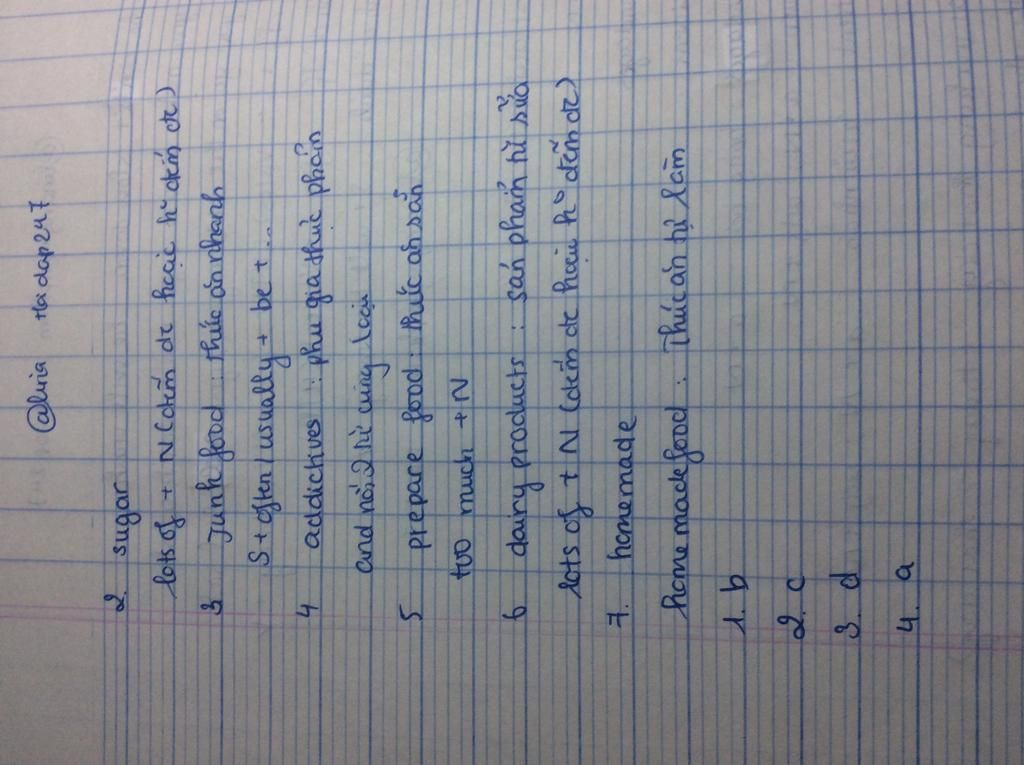 @luna hoidap247
2. sugar
lots of + N (đếm đc hoặc ko đếm đc)
3 junk food : thức ăn nhanh
S + often / usually + be + ...
4 addictives : phụ gia thực phẩm
and nối 2 từ cùng loại
5 prepare food : thức ăn sẵn
too much + N
6 dairy products : sản phẩm từ sữa
lots of + N (đếm đc hoặc ko đếm đc)
7. homemade
homemade food : Thức ăn tự làm
1. b
2. c
3. d
4. a